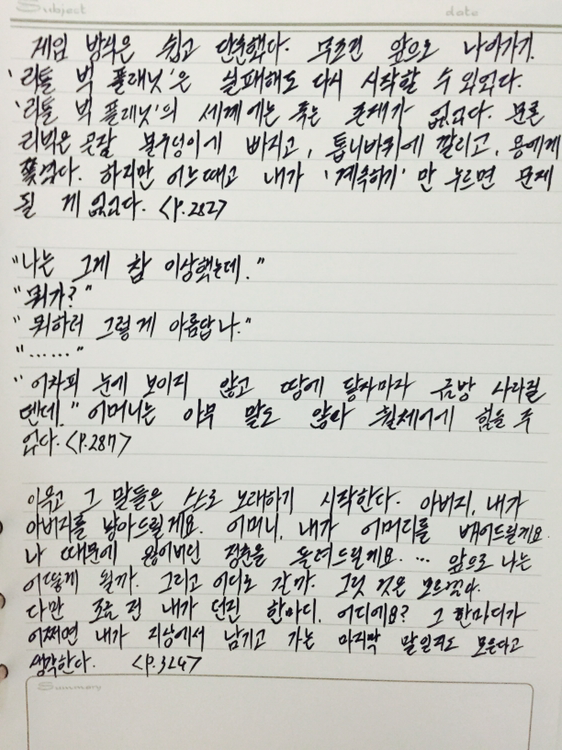 Subject
date
게임 방식은 쉽고 단순했다. 무조건 앞으로 나아가기.
'리틀 빅 플래닛'은 실패해도 다시 시작할 수 있었다.
'리틀 빅 플래닛'의 세계에는 죽는 존재가 없었다. 물론
리빅은 곧잘 불구덩이에 빠지고, 톱니바퀴에 깔리고, 용에게
쫓겼다. 하지만 어느 때고 내가 '계속하기'만 누르면 문제
될 게 없었다. <P.282>
"나는 그게 참 이상했는데."
"뭐가?"
"뭐하러 그렇게 아름답나."
"......"
"어차피 눈에 보이지 않고 땅에 닿자마자 금방 사라질
텐데." 어머니는 아무 말도 않아 휠체어에 힘을 주
었다. <P.287>
이윽고 그 말들은 스스로 노래하기 시작한다. 아버지, 내가
아버지를 낳아드릴게요. 어머니, 내가 어머니를 배어드릴게요.
나 때문에 잃어버린 청춘을 돌려드릴게요. ... 앞으로 나는
어떻게 될까. 그리고 어디로 갈까. 그런 것은 모르겠다.
다만 조금 전 내가 던진 한마디, 어디에요? 그 한마디가
어쩌면 내가 지상에서 남기고 가는 마지막 말일지도 모른다고
생각한다. <P.324>
Summary